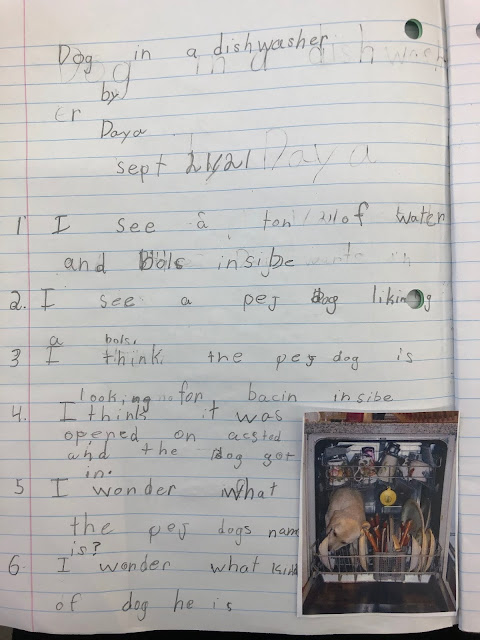 Dog in a dishwasher
by
Er
Daya
sept 21/21 Daya
1 I see a ton of water
and bols insibe
2. I see a pej Dog liking
a bols.
3 I think the pej dog is
looking for bacin insibe
4. I think it was
opened on acsted
and the dog got
in.
5 I wonder what
the pej dogs name
is?
6. I wonder what kind
of dog he is